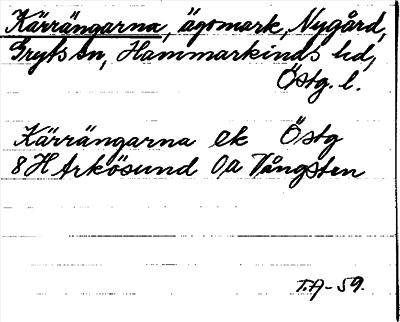 Kärrängarna, ägomark, Nygård,
Gryts sn, Hammarkinds hd,
Östg. l.
Kärrängarna ek Östg
8H Arkösund 0a Vångsten
T.A-59.